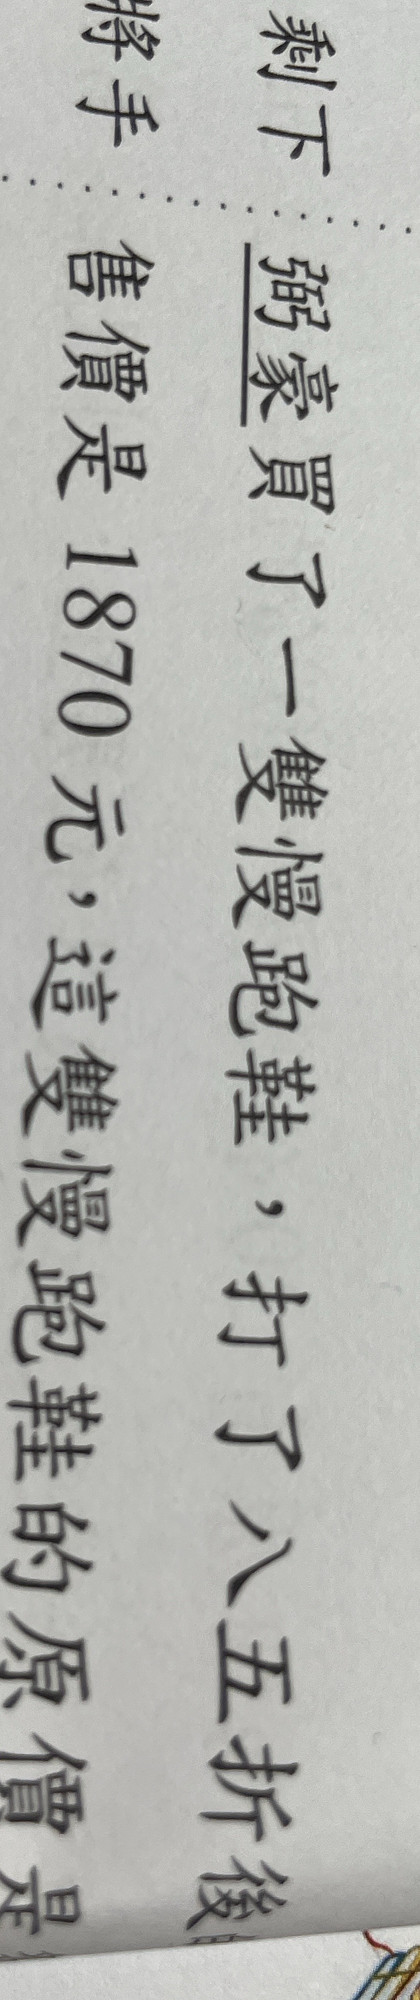 剩下
將手
弼豪買了一雙慢跑鞋，打了八五折後
售價是 1870 元，這雙慢跑鞋的原價是